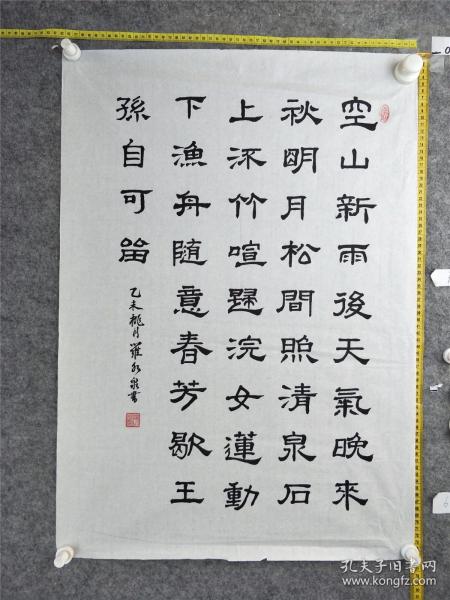 空山新雨後天氣晚來
秋明月松間照清泉石
上流竹喧歸浣女蓮動
下漁舟随意春芳歇王
孫自可留
乙未桃月羅泉書
孔夫子旧书网
www.kongfz.com